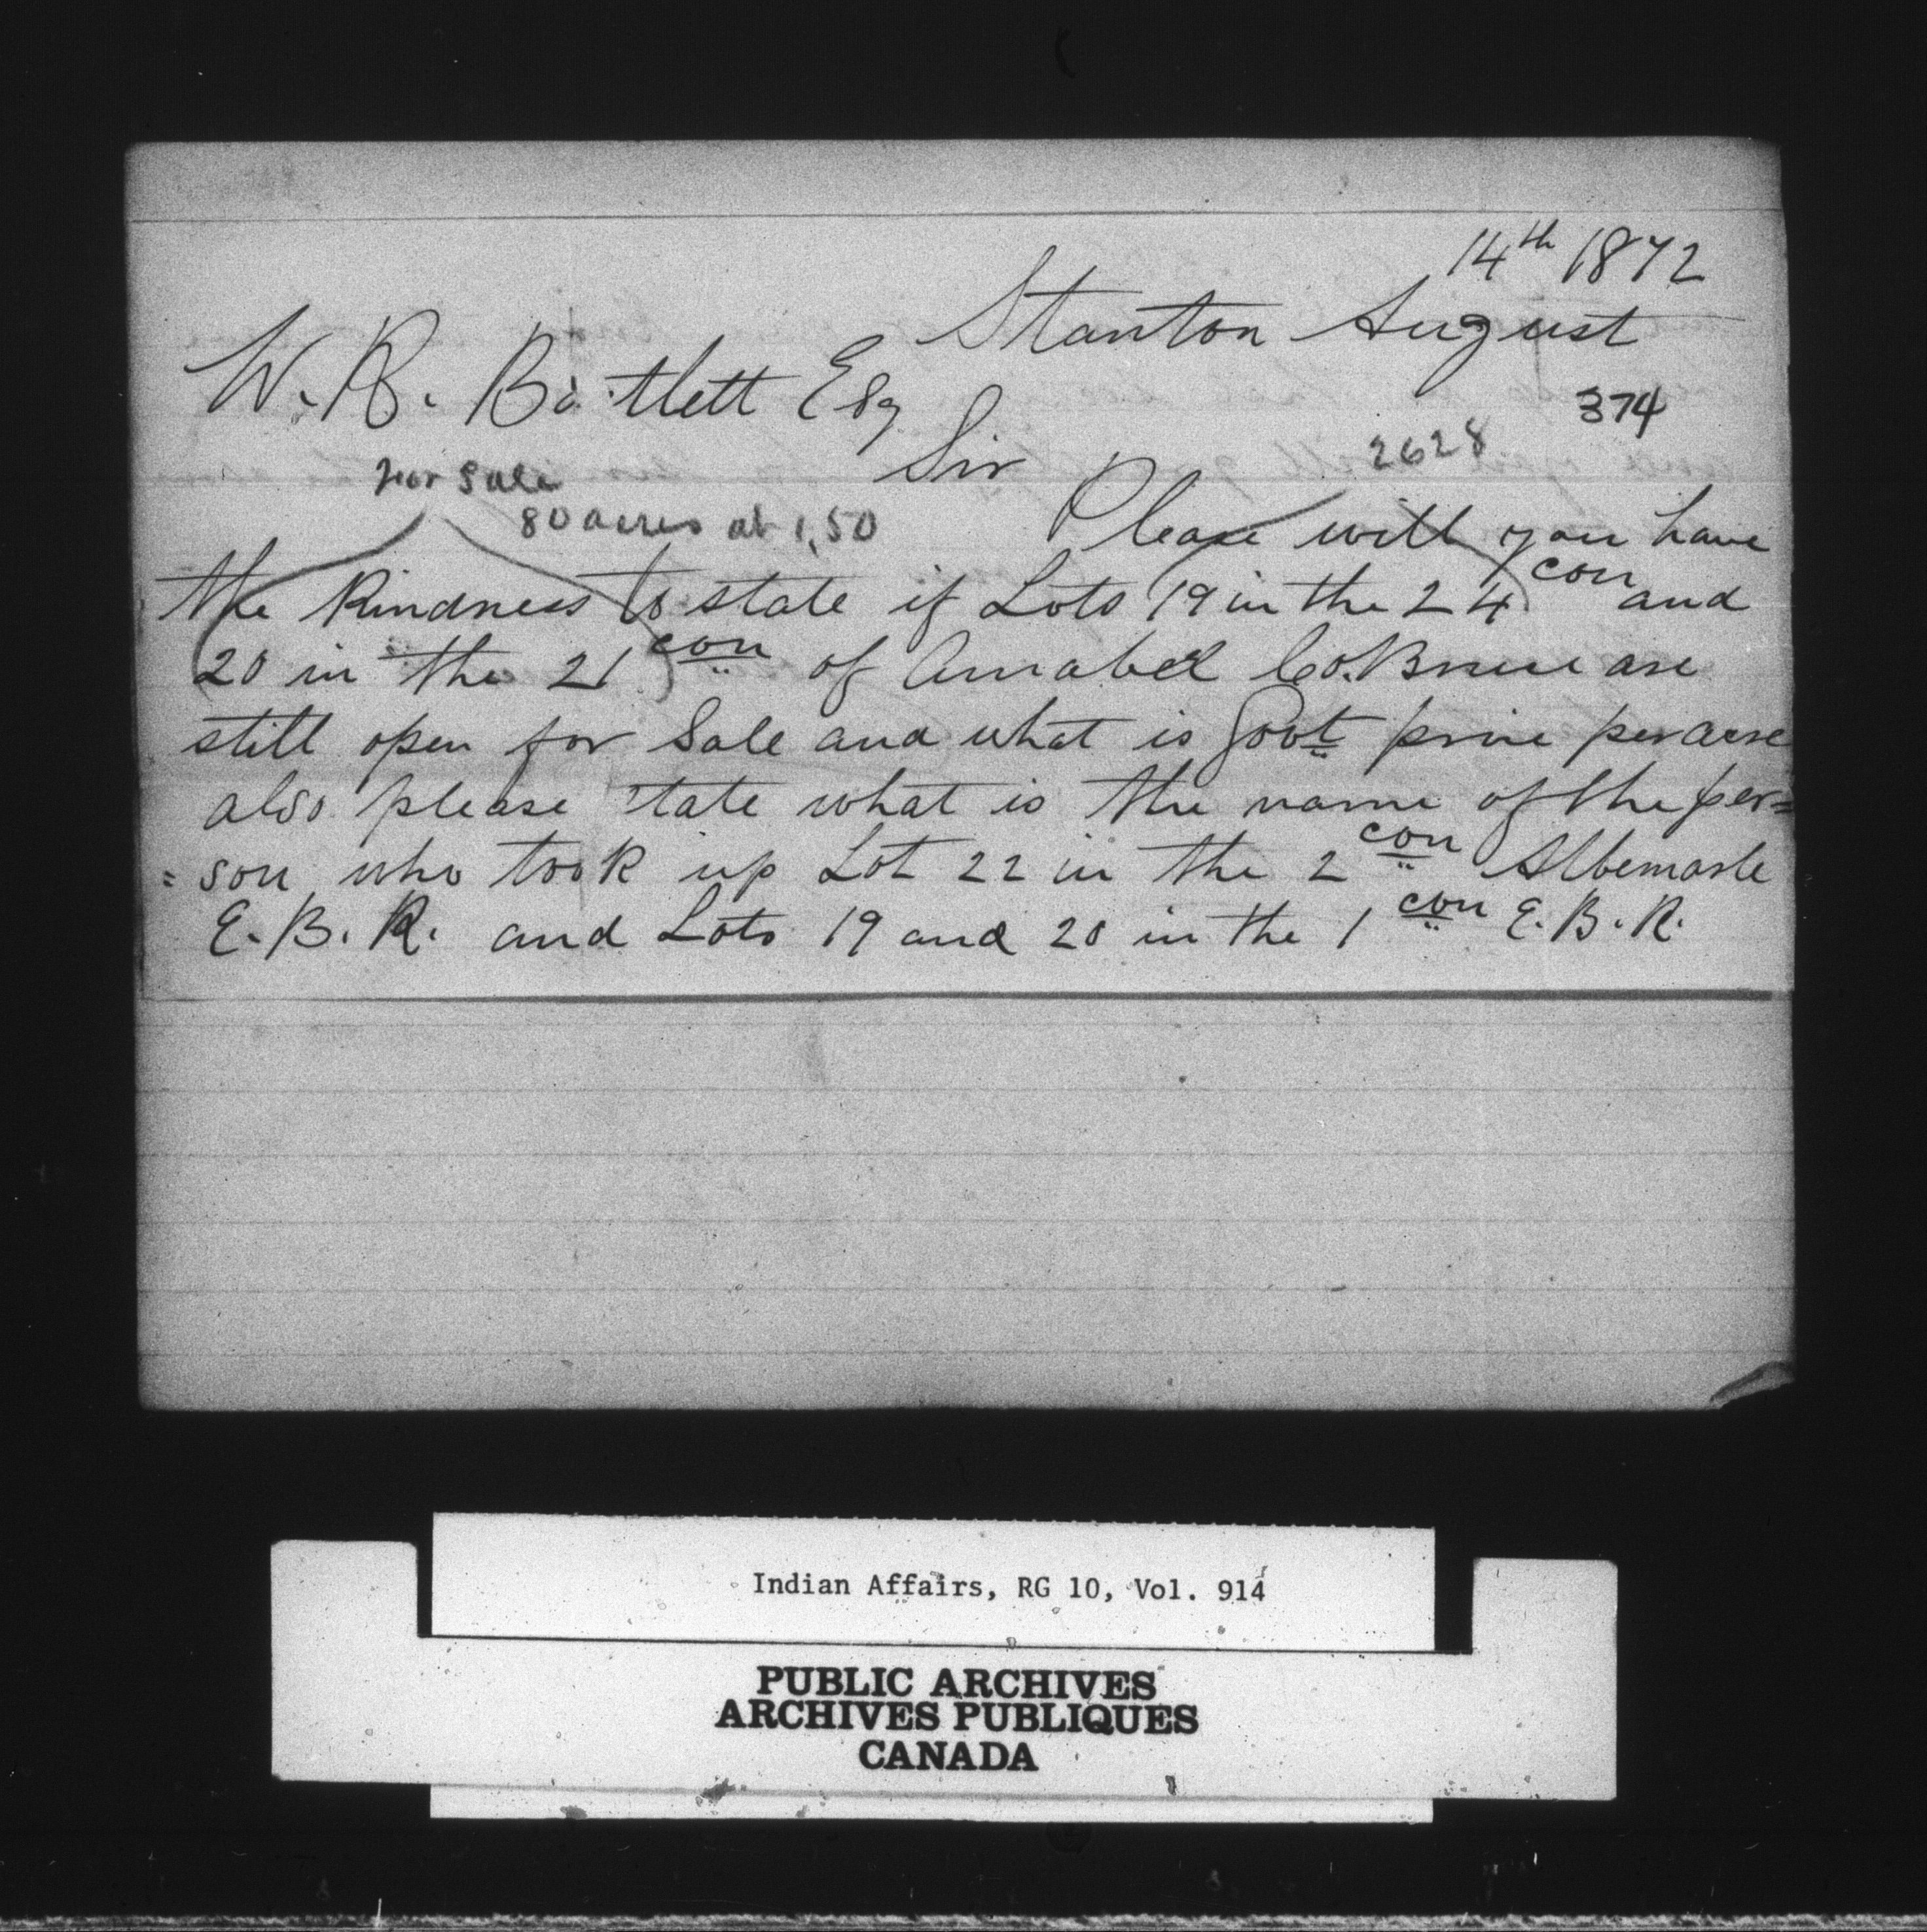 14th 1872
Stanton August
W. R. Bartlett Esq
374
Sir
2628
For Sale
80 acres at 1,50
Please will you have
the Kindness to state if Lots 19 in the 24 con and
20 in the 21 con of Amabel Co. Bruce are
still open for Sale and what is Govt price per acre
also please state what is the name of the per=
=son who took up Lot 22 in the 2 con Albemarle
E. B. R. and Lots 19 and 20 in the 1 con E. B. R.
Indian Affairs, RG 10, Vol. 914
PUBLIC ARCHIVES
ARCHIVES PUBLIQUES
CANADA